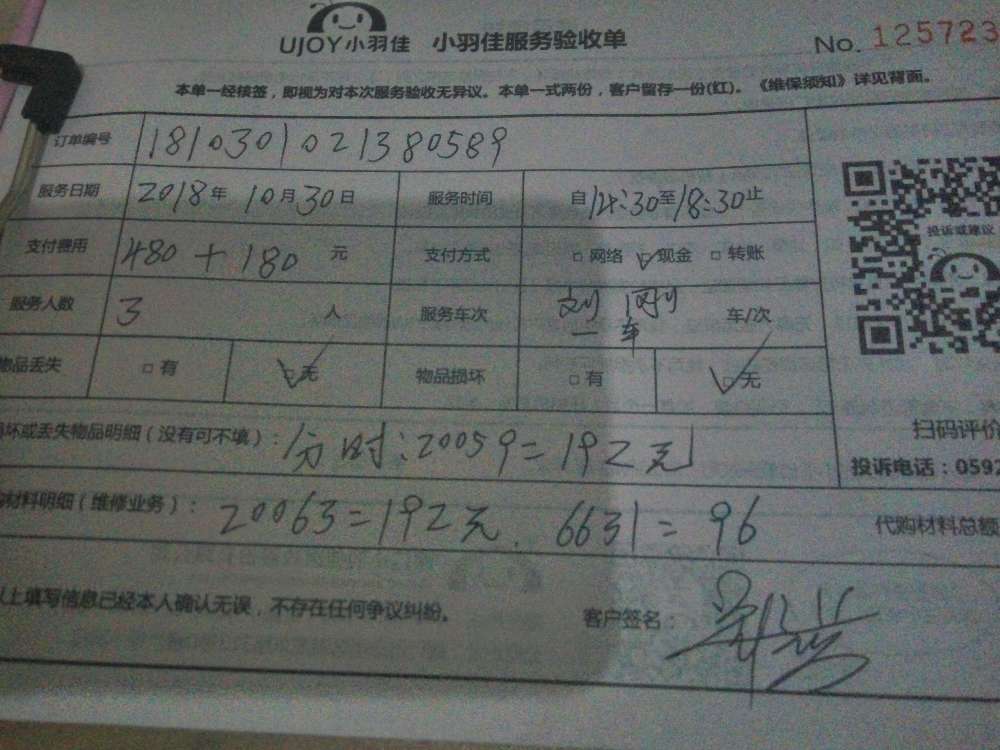 UJOY小羽佳 小羽佳服务验收单 No. 125723
本单一经核签，即视为对本次服务验收无异议。本单一式两份，客户留存一份(红)。《维保须知》详见背面。
订单编号 1810301021380589
服务日期 2018年 10月30日 服务时间 自14:30至18:30止
支付费用 480+180 元 支付方式 □ 网络 ☑ 现金 □ 转账
投诉或建议
服务人数 3 人 服务车次 一车 车/次
物品丢失 □ 有 ☑ 无 物品损坏 □ 有 ☑ 无
坏或丢失物品明细（没有可不填）： 分时:20059=192元
扫码评价
投诉电话：0592
材料明细（维修业务）： 20063=192元. 6631=96 代购材料总额
以上填写信息已经本人确认无误，不存在任何争议纠纷。 客户签名：